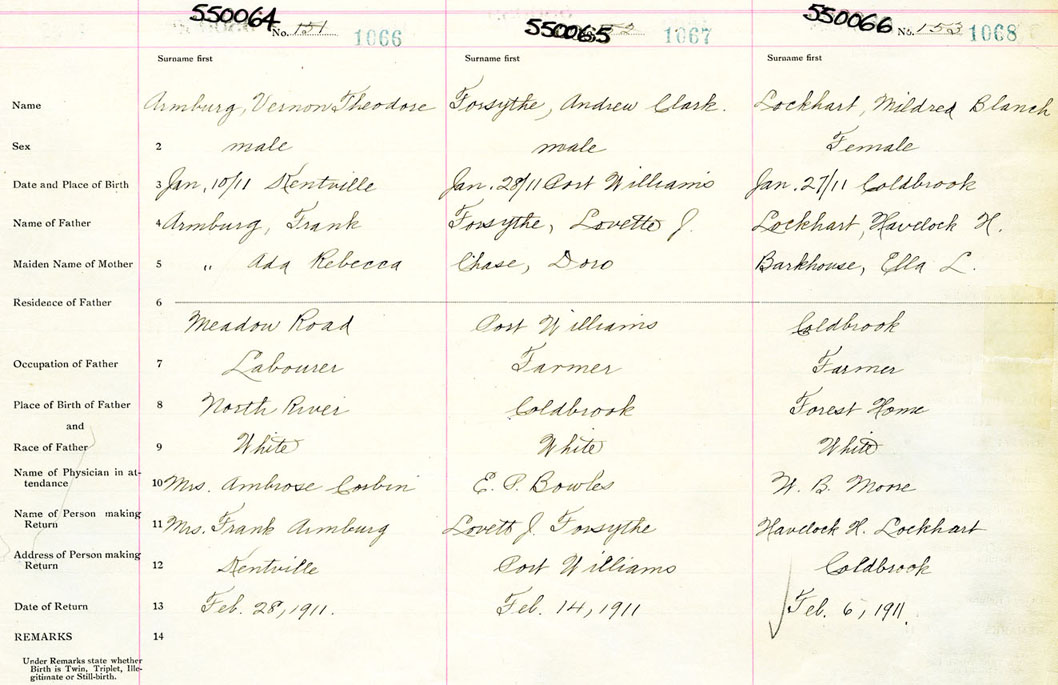 550064 No. 151 1066 550065 52 1067 550066 No. 153 1068
Surname first Surname first Surname first
Name Armburg, Vernon Theodore Forsythe, Andrew Clark. Lockhart, Mildred Blanch
Sex 2 male male Female
Date and Place of Birth 3 Jan. 10/11 Kentville Jan. 28/11 Port Williams Jan. 27/11 Coldbrook
Name of Father 4 Armburg, Frank Forsythe, Lovette J. Lockhart, Havelock H.
Maiden Name of Mother 5 " Ada Rebecca Chase, Doro Barkhouse, Ella L.
Residence of Father 6
Meadow Road Port Williams Coldbrook
Occupation of Father 7 Labourer Farmer Farmer
Place of Birth of Father 8 North River Coldbrook Forest Home
and
Race of Father 9 White White White
Name of Physician in at-
tendance 10 Mrs. Ambrose Corbin E. P. Bowles W. B. Moore
Name of Person making
Return 11 Mrs. Frank Armburg Lovett J. Forsythe Havelock H. Lockhart
Address of Person making
Return 12 Kentville Port Williams Coldbrook
Date of Return 13 Feb. 28, 1911. Feb. 14, 1911 Feb. 6, 1911.
REMARKS 14
Under Remarks state whether
Birth is Twin, Triplet, Ille-
gitimate or Still-birth.